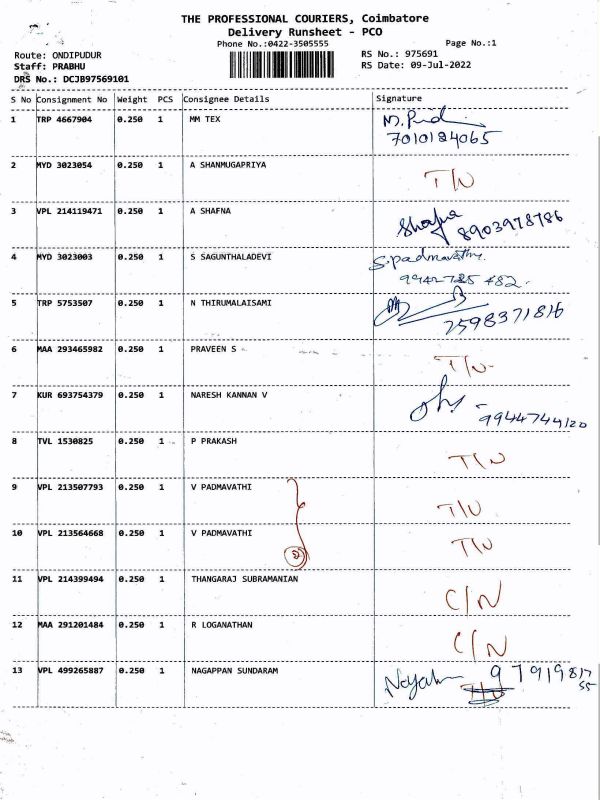 THE PROFESSIONAL COURIERS, Coimbatore
Delivery Runsheet - PCO
Phone No.:0422-3505555
Page No.:1
Route: ONDIPUDUR
RS No.: 975691
Staff: PRABHU
RS Date: 09-Jul-2022
DRS No.: DCJB97569101
S No Consignment No Weight PCS Consignee Details Signature
1 TRP 4667904 0.250 1 MM TEX
7010184065
2 MYD 3023054 0.250 1 A SHANMUGAPRIYA T/N
3 VPL 214119471 0.250 1 A SHAFNA Shafna
8903978786
4 MYD 3023003 0.250 1 S SAGUNTHALADEVI S.padmavathy.
9942785 482.
5 TRP 5753507 0.250 1 N THIRUMALAISAMI
7598371816
6 MAA 293465982 0.250 1 PRAVEEN S T/N
7 KUR 693754379 0.250 1 NARESH KANNAN V
9944744120
8 TVL 1530825 0.250 1 P PRAKASH T/N
9 VPL 213507793 0.250 1 V PADMAVATHI T/N
10 VPL 213564668 0.250 1 V PADMAVATHI 2 T/N
11 VPL 214399494 0.250 1 THANGARAJ SUBRAMANIAN C/N
12 MAA 291201484 0.250 1 R LOGANATHAN C/N
13 VPL 499265887 0.250 1 NAGAPPAN SUNDARAM 97919817
55